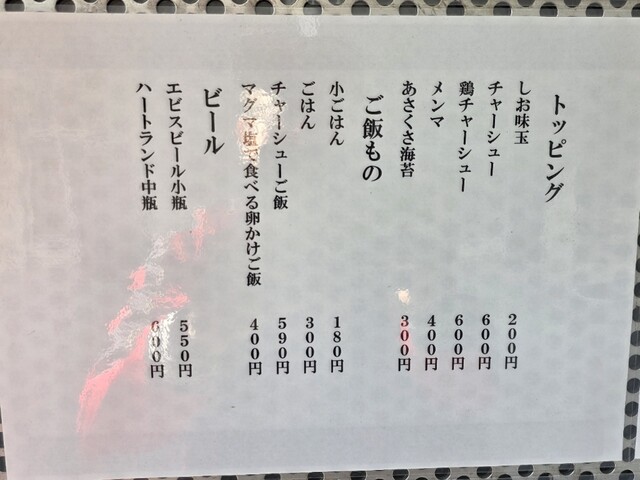 トッピング
しお味玉 200円
チャーシュー 600円
鶏チャーシュー 600円
メンマ 400円
あさくさ海苔 300円
ご飯もの
小ごはん 180円
ごはん 300円
チャーシューご飯 590円
マグマ塩で食べる卵かけご飯 400円
ビール
エビスビール小瓶 550円
ハートランド中瓶 600円